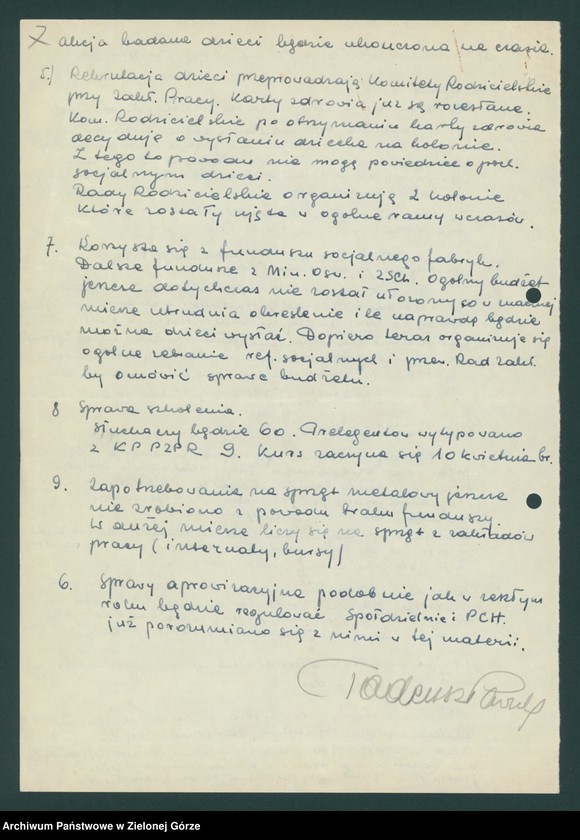 akcja badania dzieci będzie ukończona na czasie.
5./ Rekrutacja dzieci przeprowadzają Komitety Rodzicielskie
przy zakł. Pracy. Karty zdrowia już są rozesłane.
Kom. Rodzicielskie po otrzymaniu karty zdrowia
decydują o wysłaniu dziecka na kolonie.
Z tego to powodu nie mogą powiedzieć o poch.
socjalnym dzieci.
Rady Rodzicielskie organizują 2 kolonie
które zostały ujęte w ogólne ramy wczasów.
7. Korzysta się z funduszu socjalnego fabryk.
Dalsze fundusze z Min. Ośw. i ZSCh. Ogólny budżet
jeszcze dotychczas nie został ułożony co w
mierze utrudnia określenie ile naprawdę będzie
można dzieci wysłać. Dopiero teraz organizuje się
ogólne zebranie ref. socjalnych i prze. Rad zakł.
by omówić sprawę budżetu.
8 Sprawa szkolenia.
Słuchaczy będzie 60. Prelegentów wytypowano
z KP PZPR 9. Kurs zaczyna się 10 kwietnia br.
9. Zapotrzebowania na sprzęt metalowy jeszcze
nie zrobiono z powodu braku funduszy.
W dużej mierze liczy się na sprzęt z zakładów
pracy (internaty, bursy)
6. Sprawy aprowizacyjne podobnie jak w zeszłym
roku będzie regulować Spółdzielnie i PCH.
już porozumiano się z nimi w tej materii.
Tadeusz
Archiwum Państwowe w Zielonej Górze